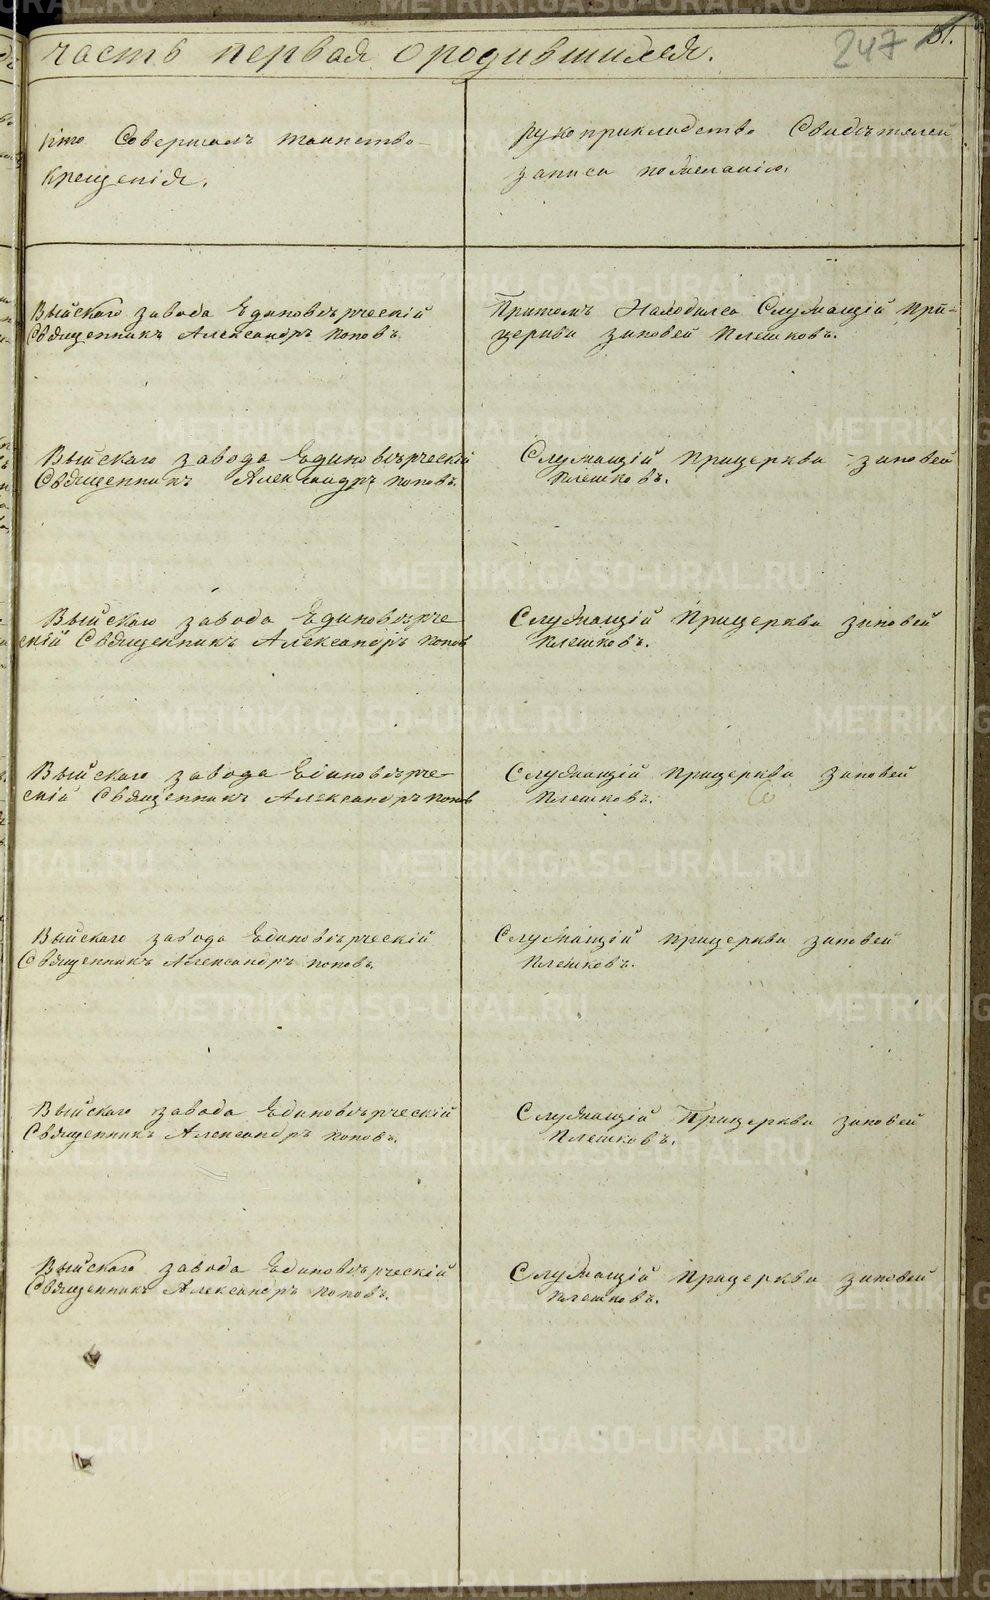 часть первая о родившихся.
247
51.
Кто Совершалъ таинство
Крещенія.
рукоприкладство Свидѣтелей
записи по желанію.
Выйскаго завода Единовѣрческій
Священникъ Александръ Поповъ.
Притомъ Находился Служащій При
церкви Зиновей Плешковъ.
Выйскаго завода Единовѣрческій
Священникъ Александръ Поповъ.
Служащій Прицеркви Зиновей
Плешковъ.
Выйскаго завода Единовѣрче
скій Священникъ Александръ Попов
Служащій Прицеркви Зиновей
Плешковъ.
Выйскаго завода Единовѣрче-
скій Священникъ Александръ Попов
Служащій Прицеркви Зиновей
Плешковъ.
Выйскаго завода Единовѣрческій
Священникъ Александръ Поповъ.
Служащій прицеркви Зиновей
Плешковъ.
Выйскаго завода Единовѣрческій
Священникъ Александръ Поповъ.
Служащій Прицеркви Зиновей
Плешковъ.
Выйскаго завода Единовѣрческій
Священникъ Александръ Поповъ.
Служащій прицеркви Зиновей
Плешковъ.
METRIKI.GASO-URAL.RU